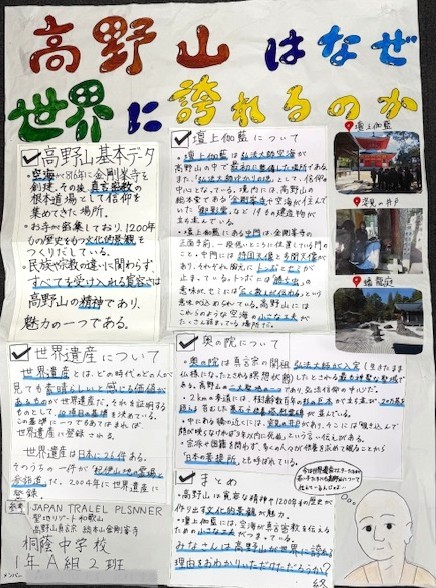 高野山はなぜ
世界に誇れるのか
高野山基本データ
・空海が816年に金剛峯寺を
創建。その後、真言密教の
根本道場として信仰を
集めてきた場所。
・お寺が密集しており、1200年
もの歴史をもつ文化的景観を
つくりだしている。
・民族や宗教の違いに関わらず、
すべてを受け入れる寛容さは
高野山の精神であり、
魅力の一つである。
世界遺産について
世界遺産とは、どの時代のどの人が
見ても素晴らしいと感じる価値が
あるものが世界遺産だ。それを証明する
ものとして、10項目の基準を決めている。
この基準に一つでもあてはまれば、
世界遺産に登録される。
世界遺産は日本に26件ある。
そのうちの一件が「紀伊山地の霊場と
参詣道」だ。2004年に世界遺産に
登録。
参考
JAPAN TRALEL PLSNNER
聖地リゾート和歌山
高野山真言宗 総本山金剛峯寺
桐蔭中学校
1年A組2班
メンバー
壇上伽藍について
・壇上伽藍は弘法大師空海が
高野山の中で最初に整備した場所である。
また、弘法大師ゆかりの地として、信仰の
中心となっている。境内には、高野山の
総本堂である金剛峯寺や空海が住んで
いた「御影堂」など19もの建造物が
立ち並んでいる。
・壇上伽藍にある中門は、金剛峯寺の
正面手前、一段低いところに位置している門の
こと。中門には持国天像と多聞天像が
あり、それぞれ胸元にトンボとセミが
止まっている。トンボには「勝ち虫」の
意味が、セミには「遠く数人が伝わる」という
意味が込められている。高野山には
これらのような空海の小さな工夫が
たくさん詰まっている場所だ。
奥の院について
・奥の院は真言宗の開祖弘法大師が入定（生きたまま
仏様になったとされる瞑想状態）したとされる最も神聖な聖域で
ある。高野山の二大聖地の一つであり、弘法信仰の中心だ。
・2kmの参道には、樹齢数百年の杉の巨木が立ち並び、20万基を
超える苔むした墓石や供養塔、慰霊碑が並んでいる。
・中にある橋の近くには、姿見の井戸があり、そこには「覗き込んで
顔が映らなければ3年以内に死ぬ」という言い伝えがある。
・宗派や国籍を問わず、多くの人々が供養を求めて眠ることから
「日本の菩提所」とも呼ばれている。
まとめ
・高野山は寛容な精神や1200年の歴史が
作り出す文化的景観が魅力。
・壇上伽藍には、空海が真言密教を伝える
ための小さな工夫がつまっている。
みなさんは高野山が世界に誇れる
理由をおわかりいただけただろうか？
終
壇上伽藍
姿見の井戸
蟠龍庭